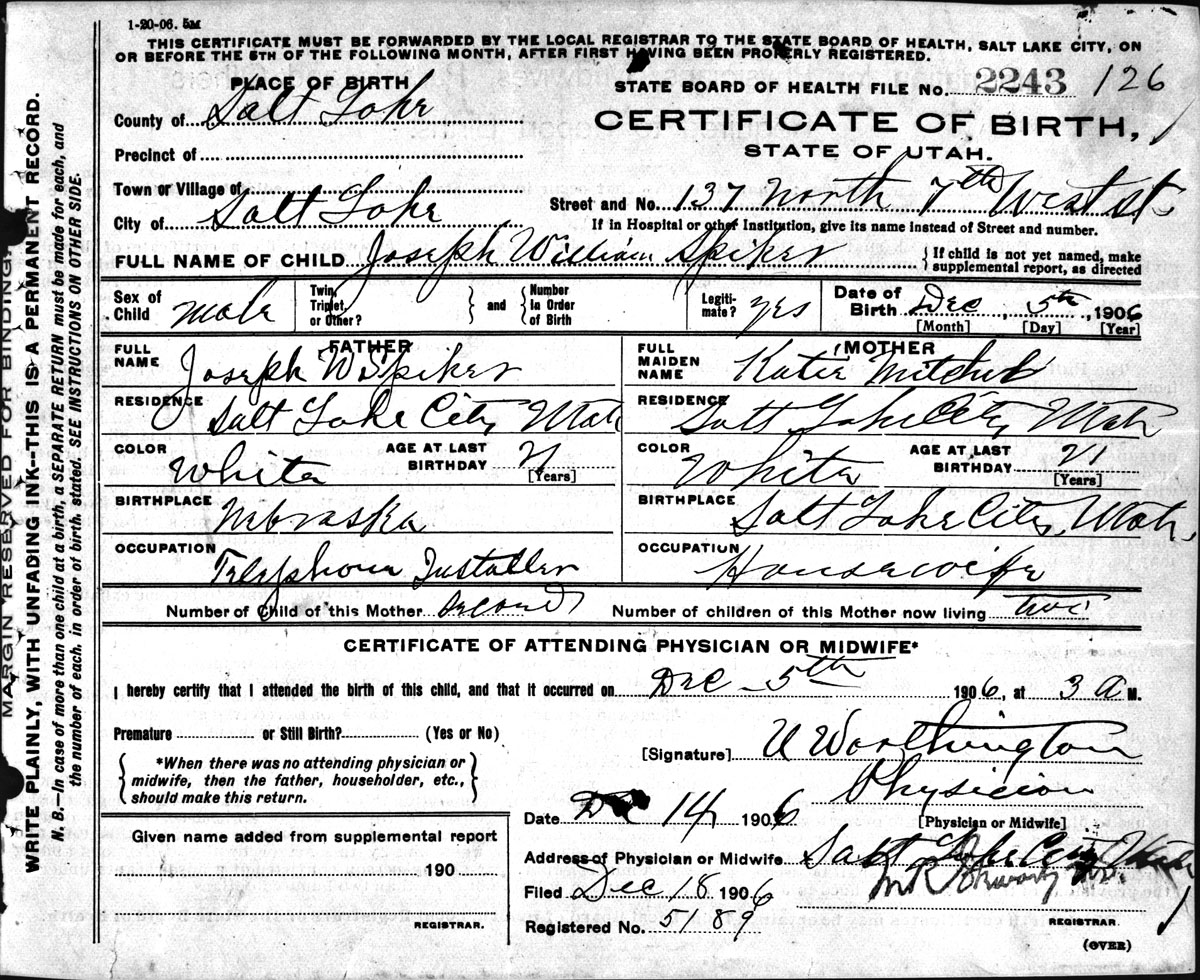 1-20-06. 5M
THIS CERTIFICATE MUST BE FORWARDED BY THE LOCAL REGISTRAR TO THE STATE BOARD OF HEALTH, SALT LAKE CITY, ON
OR BEFORE THE 5TH OF THE FOLLOWING MONTH, AFTER FIRST HAVING BEEN PROPERLY REGISTERED.
PLACE OF BIRTH
STATE BOARD OF HEALTH FILE No. 2243 126
County of Salt Lake
CERTIFICATE OF BIRTH,
STATE OF UTAH.
Precinct of
Town or Village of
Street and No. 137 North 7th West st.
City of Salt Lake
If in Hospital or other Institution, give its name instead of Street and number.
FULL NAME OF CHILD Joseph William Spiker
{ If child is not yet named, make
supplemental report, as directed
Sex of Child Male
Twin, Triplet, or Other? } and { Number in Order of Birth
Legiti-mate? yes
Date of Birth Dec, 5th, 1906
[Month] [Day] [Year]
FATHER
FULL NAME Joseph W Spiker
RESIDENCE Salt Lake City Utah
COLOR White AGE AT LAST BIRTHDAY 21 [Years]
BIRTHPLACE Nebraska
OCCUPATION Telephone Installer
MOTHER
FULL MAIDEN NAME Katie Mitchel
RESIDENCE Salt Lake City Utah
COLOR White AGE AT LAST BIRTHDAY 21 [Years]
BIRTHPLACE Salt Lake City, Utah.
OCCUPATION Housewife
Number of Child of this Mother second Number of children of this Mother now living two
CERTIFICATE OF ATTENDING PHYSICIAN OR MIDWIFE*
I hereby certify that I attended the birth of this child, and that it occurred on Dec - 5th 1906, at 3 A M.
Premature or Still Birth? (Yes or No)
[Signature] U Worthington
{ *When there was no attending physician or
midwife, then the father, householder, etc.,
should make this return. }
Physician
[Physician or Midwife]
Date Dec 14 1906
Given name added from supplemental report
190
REGISTRAR.
Address of Physician or Midwife Salt Lake City Utah
Filed Dec 18 1906
Registered No. 5189
REGISTRAR.
(OVER)
MARGIN RESERVED FOR BINDING.
WRITE PLAINLY, WITH UNFADING INK--THIS IS A PERMANENT RECORD.
N. B.—In case of more than one child at a birth, a SEPARATE RETURN must be made for each, and
the number of each, in order of birth, stated. SEE INSTRUCTIONS ON OTHER SIDE.